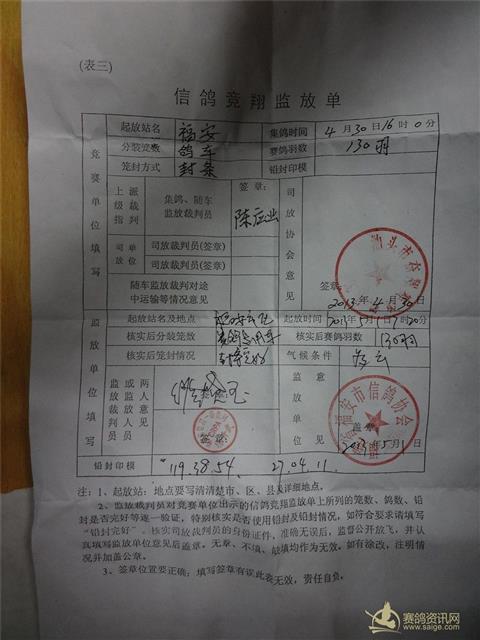 (表三)
信鸽竞翔监放单
竞赛单位填写
起放站名 福安 集鸽时间 4月30日16时0分
分装笼数 鸽车 赛鸽羽数 130羽
笼封方式 封条 铅封印模
上级指派裁判 集鸽、随车监放裁判员 签章: 陈应业 司放协会意见
司放单位 司放裁判员(签章)
司放裁判员(签章)
随车监放裁判对途中运输等情况意见 签章:
2013年4月30日
监放单位填写
起放站名及地点 起放时间 2013年5月1日7时20分
核实后分装笼数 核实后赛鸽羽数 130羽
核实后笼封情况 封条完好 气候条件 多云
监放裁判员 或两放飞人员 意见 签章: 监放单位意见 福安市信鸽协会 盖章:
2013年5月1日
铅封印模 119.38.54 27.04.11
注:1、起放站:地点要写清清楚市、区、县及详细地点。
2、监放裁判员对竞赛单位出示的信鸽竞翔监放单上所列的笼数、鸽数、铅
封是否完好等逐一验证,特别核实是否使用铅封及铅封情况,如符合要求请填写
“铅封完好”。核实司放裁判员的身份证件,准确无误后,监督公开放飞,并认
真填写监放单位意见后盖章。无章、不填、缺填均作为无效。如有涂改,注明情
况并加盖公章。
3、签章位置要正确,填写签章有误此表无效,责任自负。
赛鸽资讯网
www.saige.com